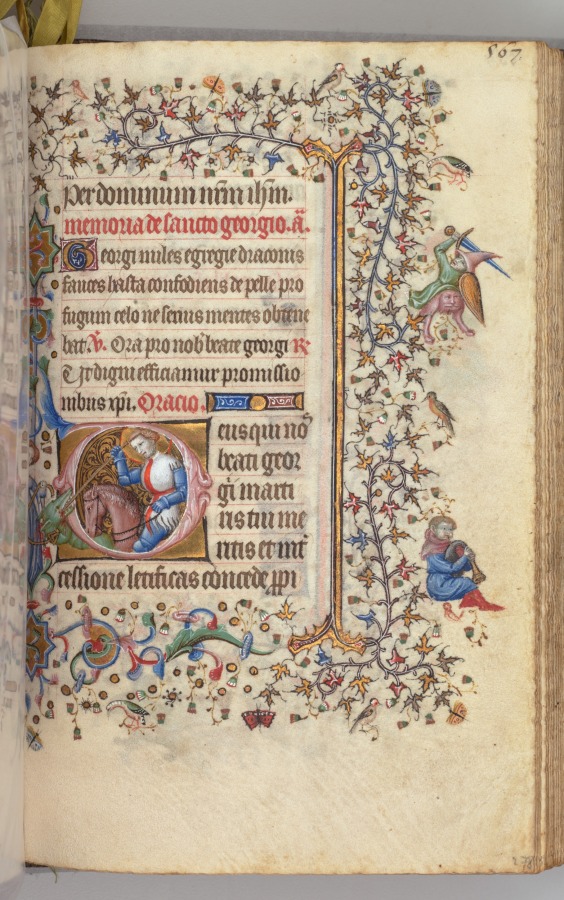 507.
Per dominum nr̄m ih̄m.
memoria de sancto georgio. a͞.
Georgi miles egregie draconis
fauces hasta confodiens de pelle pro
fugum celo ne setius mentes obtene
bat. V̄. Ora pro nob̄ beate georgi R̄
Ut digni efficiamur promissio
nibus xp̄i. Oracio.
Deus qui nō
beati geor
gii marti
ris tui me
ritis et īt
cessione letificas concede p̱pi
278